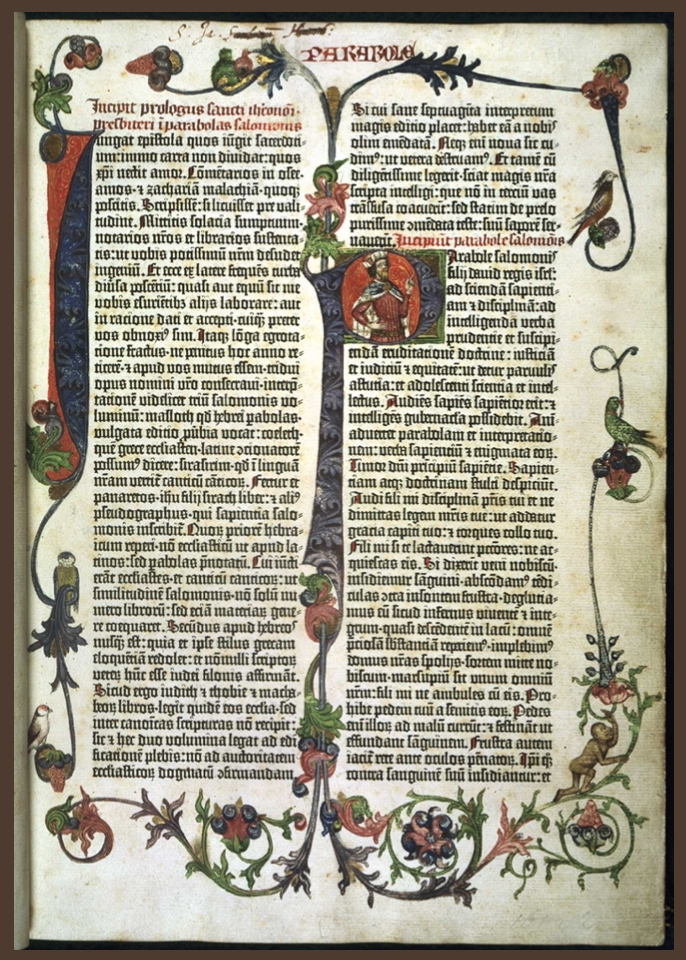 PARABOLE
Incipit prologus sancti iheronimi
presbiteri ī parabolas salomonis
Iungat epistola quos iungit sacerdoti-
um: immo carta non diuidat: quos
xp̄i nectit amor. Cōmētarios in osee.
amos. ⁊ zachariā malachiā· quoqꝫ
poscitis. Scripsissē: si licuisset pre vali-
tudine. Mittitis solacia sumptuum·
notarios nr̄os et librarios sustenta-
tis: ut vobis potissimū nr̄m desudet
ingeniū. Et ecce ex latere freq̄uēs turba
diūsa poscētiū: quasi aut equū sit me
vobis esuriētibꝫ alijs laborare: aut
in racione dati et accepti· cuiqꝫ preter
vos obnoxiꝰ sim. Itaqꝫ lōga egrota-
tione fractus· ne penitus hoc anno re-
ticerē· ⁊ apud vos mutus essem· tridui
opus nomini vr̄o consecraui· interp̄-
tationē videlicet triū salomonis vo-
luminū: masloth qd̄ hebrei pabolas·
vulgata editio ꝓūbia vocat: coeleth·
quē grece ecclesiasten· latine ꝯcionatorē
possumꝰ dicere: sirasirim· qd̄ ī linguā
nr̄am vertit̄ canticū cāticoꝝ. Fertur et
panaretos· ihū filij sirach liber: ⁊ aliꝰ
pseudographus· qui sapientia salo-
monis inscribit̄. Quoꝝ priorē hebra-
icum reperi· nō ecclesiasticū ut apud la-
tinos: sed pabolas p̄notatū. Cui iūcti
erāt ecclesiastes· et canticū canticoꝝ: ut
similitudinē salomonis· nō solū nu-
mero librorū: sed etiā materiaꝝ gene-
re coequaret. Secūdus apud hebreos
nusqꝫ est: quia et ipse stilus grecam
eloquētiā redolet: et nōnulli scriptoꝝ
veteꝝ hūc esse iudei filonis affirmāt.
Sicud ergo iudith ⁊ thobie ⁊ macha-
beoꝝ libros· legit quidē eos ecclesia· sed
inter canoīcas scripturas nō recipit:
sic ⁊ hec duo volumina legat ad edi-
ficationē plebis: nō ad auctoritatem
ecclesiasticoꝝ dogmatū ꝯfirmandam.
Si cui sane septuaginta interpretum
magis editio placet: habet eā a nobis
olim emēdatā. Neqꝫ em̄ noua sic cu-
dimꝰ: ut vetera destruamꝰ. Et tamē cū
diligētissime legerit· sciat magis nr̄a
scripta intelligi: que nō in terciū vas
trāsfusa coacuerit: sed statim de prelo
purissime ꝯmēdata teste: suū saporē ser-
uauerit. Incipiunt parabole salomōis
Parabole salomonis
filij dauid regis isrl̄:
ad sciendā sapienti-
am ⁊ disciplinā: ad
intelligendā verba
prudentie et suscipi-
endā eruditationē doctrine: iusticiā
et iudiciū ⁊ equitatē: ut detur paruulis
astutia: et adolescenti scientia et intel-
lectus. Audiēs sapiēs sapiētior erit: ⁊
intelligēs gubernacla possidebit. Ani-
aduertet parabolam et interpretatio-
nem: verba sapientiū ⁊ enigmata eoꝝ.
Timor dn̄i principiū sapiētie. Sapien-
tiam atqꝫ doctrinam stulti despiciūt.
Audi fili mi disciplinā pr̄is tui et ne
dimittas legem mr̄is tue: ut addatur
gracia capiti tuo: ⁊ torques collo tuo.
Fili mi si te lactauerint pctōres: ne ac-
quiescas eis. Si dixerīt veni nobiscū·
insidiemur sāguini· abscōdamꝰ tēdi-
culas ꝯtra insontem frustra· deglutia-
mus eū sicud infernus viuentē ⁊ inte-
grum· quasi descēdētē in lacū: omnē
p̄ciosā sb̄stantiā reperiemꝰ· implebimꝰ
domus nr̄as spolijs· sortem mitte no-
biscum· marsupiū sit unum omniū
nr̄m: fili mi ne ambules cū eis. Pro-
hibe pedem tuū a semitis eoꝝ. Pedes
em̄ illoꝝ ad malū currūt: ⁊ festināt ut
effundant sāguinem. Frustra autem
iacit̄ rete ante oculos pēnatoꝝ. Ipi qꝫ
contra sanguinē suū insidiantur: et